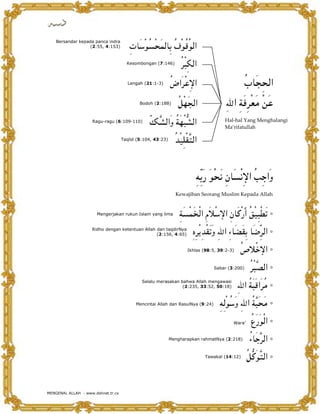 Bersandar kepada panca indra
(2:55, 4:153)
الْوُقُوْفُ بِالْمَحْسُوْسَاتِ
Kesombongan (7:146)
الْكِبْرُ
Lengah (21:1-3)
الإِعْرَاضُ
Bodoh (2:188)
الْجَهْلُ
Ragu-ragu (6:109-110)
الشُّبْهَةُ وَالشَّكُّ
Taqlid (5:104, 43:23)
التَّقْلِيْدُ
الحِجَابُ
عَنْ مَعْرِفَةِ اللهِ
Hal-hal Yang Menghalangi
Ma'rifatullah
وَاجِبُ الإِنْسَانِ نَحْوَ رَبِّهِ
Kewajiban Seorang Muslim Kepada Allah
Mengerjakan rukun Islam yang lima
* تَطْبِيْقُ أَرْكَانِ الإِسْلاَمِ الْخَمْسَةِ
Ridho dengan ketentuan Allah dan taqdirNya
(2:156, 4:65)
* الرِّضَا بِقَضَاءِ اللهِ وَتَقْدِيْرِهِ
Ikhlas (98:5, 39:2-3)
* الإِخْلاَصُ
Sabar (3:200)
* الصَّبْرُ
Selalu merasakan bahwa Allah mengawasi
(2:235, 33:52, 50:18)
* مُرَاقَبَةُ اللهِ
Mencintai Allah dan RasulNya (9:24)
* مَحَبَّةُ اللهِ وَرَسُوْلِهِ
Wara'
* الْوَرَعُ
Mengharapkan rahmatNya (2:218)
* الرَّجَاءُ
Tawakal (14:12)
* التَّوَكُّلُ
MENGENAL ALLAH - www.dahnet.tr.cx